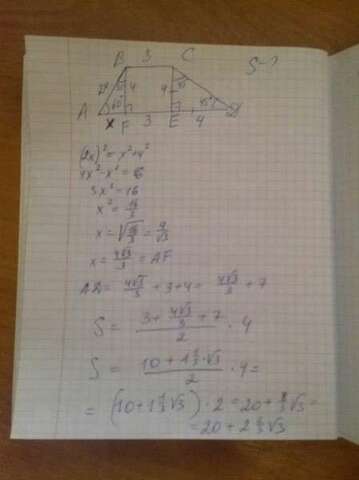 B 3 C
S-?
2x 30 4 4 45
A 60° 45° D
x F 3 E 4
(2x)²=x²+4²
4x²-x²=16
3x²=16
x²=16/3
x=√(16/3)=4/√3
x=4√3/3=AF
AD=4√3/3+3+4=4√3/3+7
S=(3+4√3/3+7)/2·4
S=(10+1⅓·√3)/2·4=
=(10+1⅓√3)·2=20+8/3√3=
=20+2⅔√3